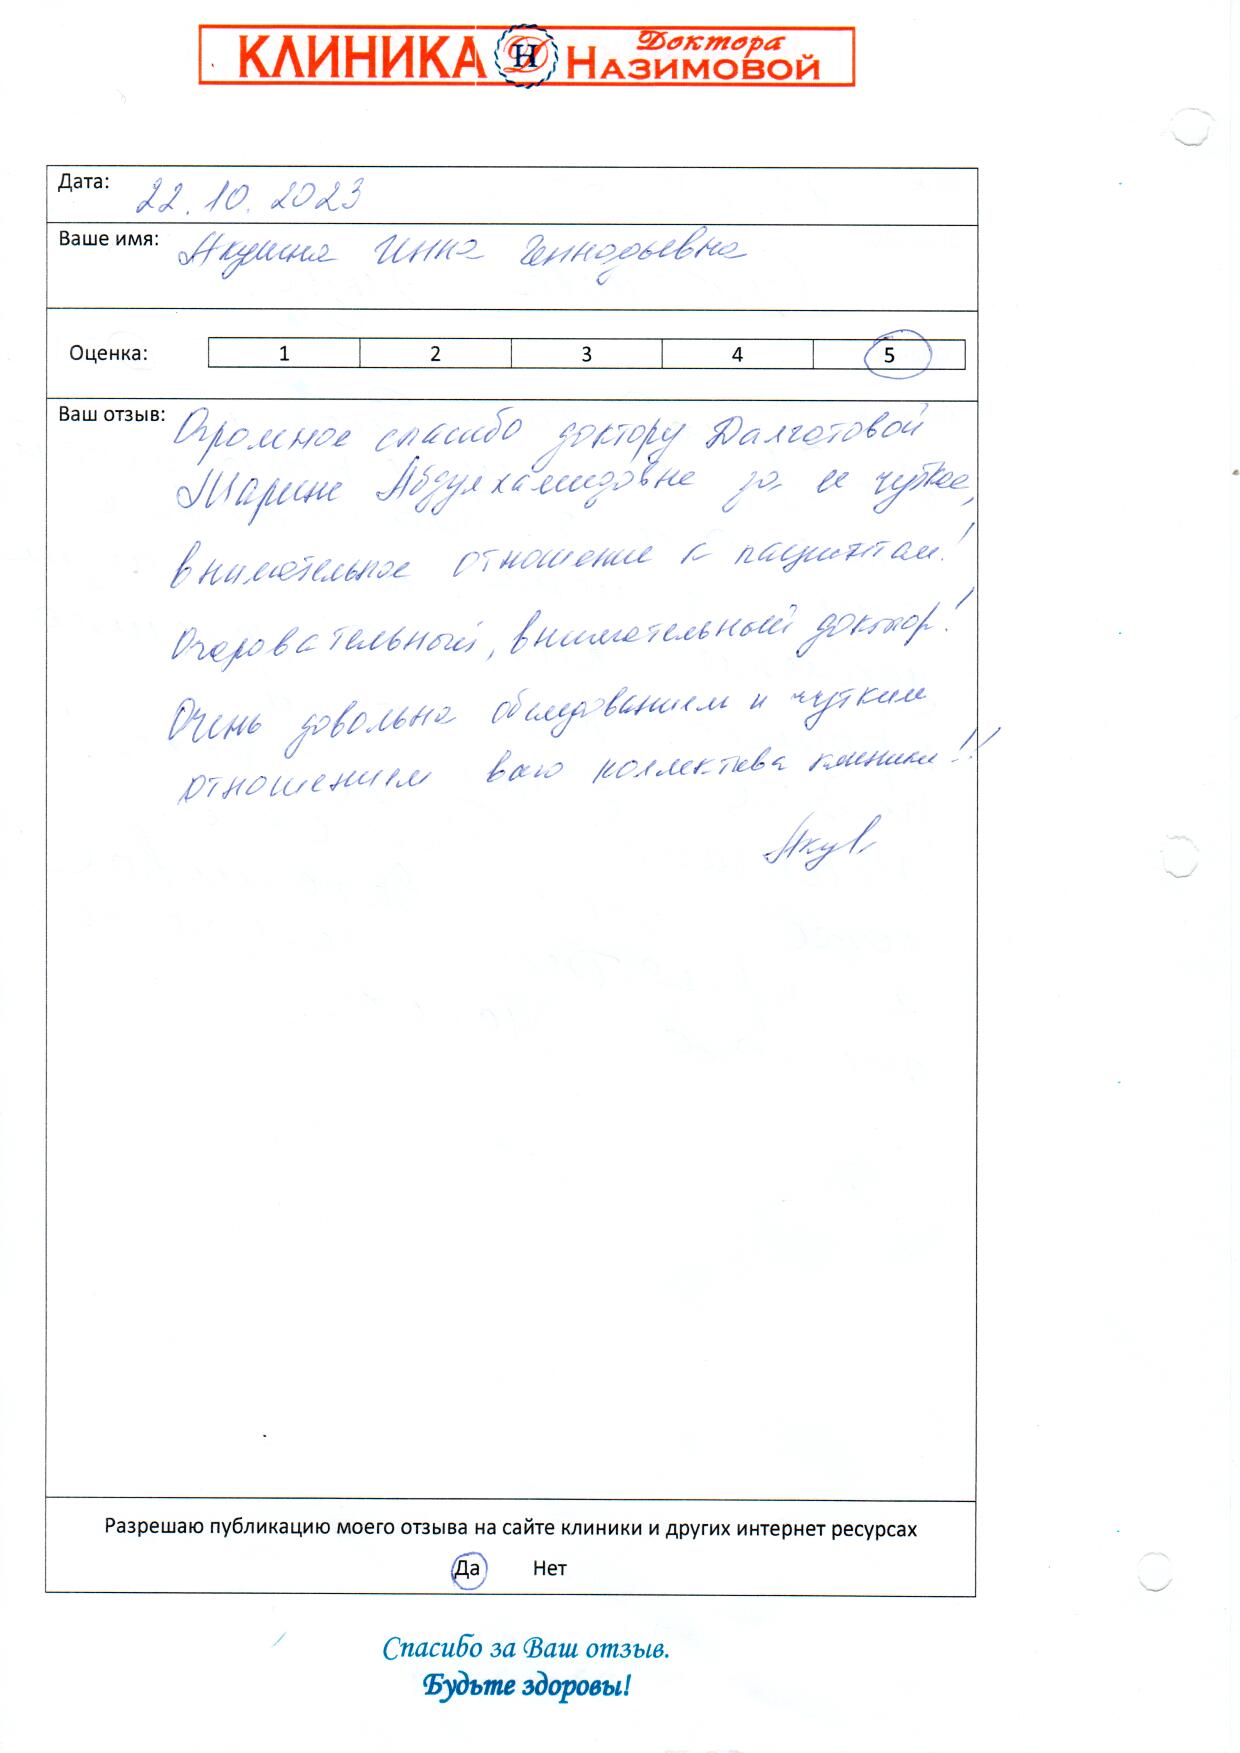 КЛИНИКА Доктора НАЗИМОВОЙ
Дата: 22.10.2023
Ваше имя: Акулина Инна Геннадьевна
Оценка: 1 2 3 4 5
Ваш отзыв: Огромное спасибо доктору Далгатовой
Марине Абдулхамидовне за её чуткое,
внимательное отношение к пациентам!
Очаровательный, внимательный доктор!
Очень довольна обследованием и чутким
отношением всего коллектива клиники!!
Разрешаю публикацию моего отзыва на сайте клиники и других интернет ресурсах
Да Нет
Спасибо за Ваш отзыв.
Будьте здоровы!